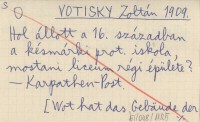 3.
VOTISKY Zoltán 1909.
Hol állott a 16. században
a késmárki prot. iskola,
mostani liceum régi épülete?
— Karpathen-Post.
[Wo hat das Gebäude der